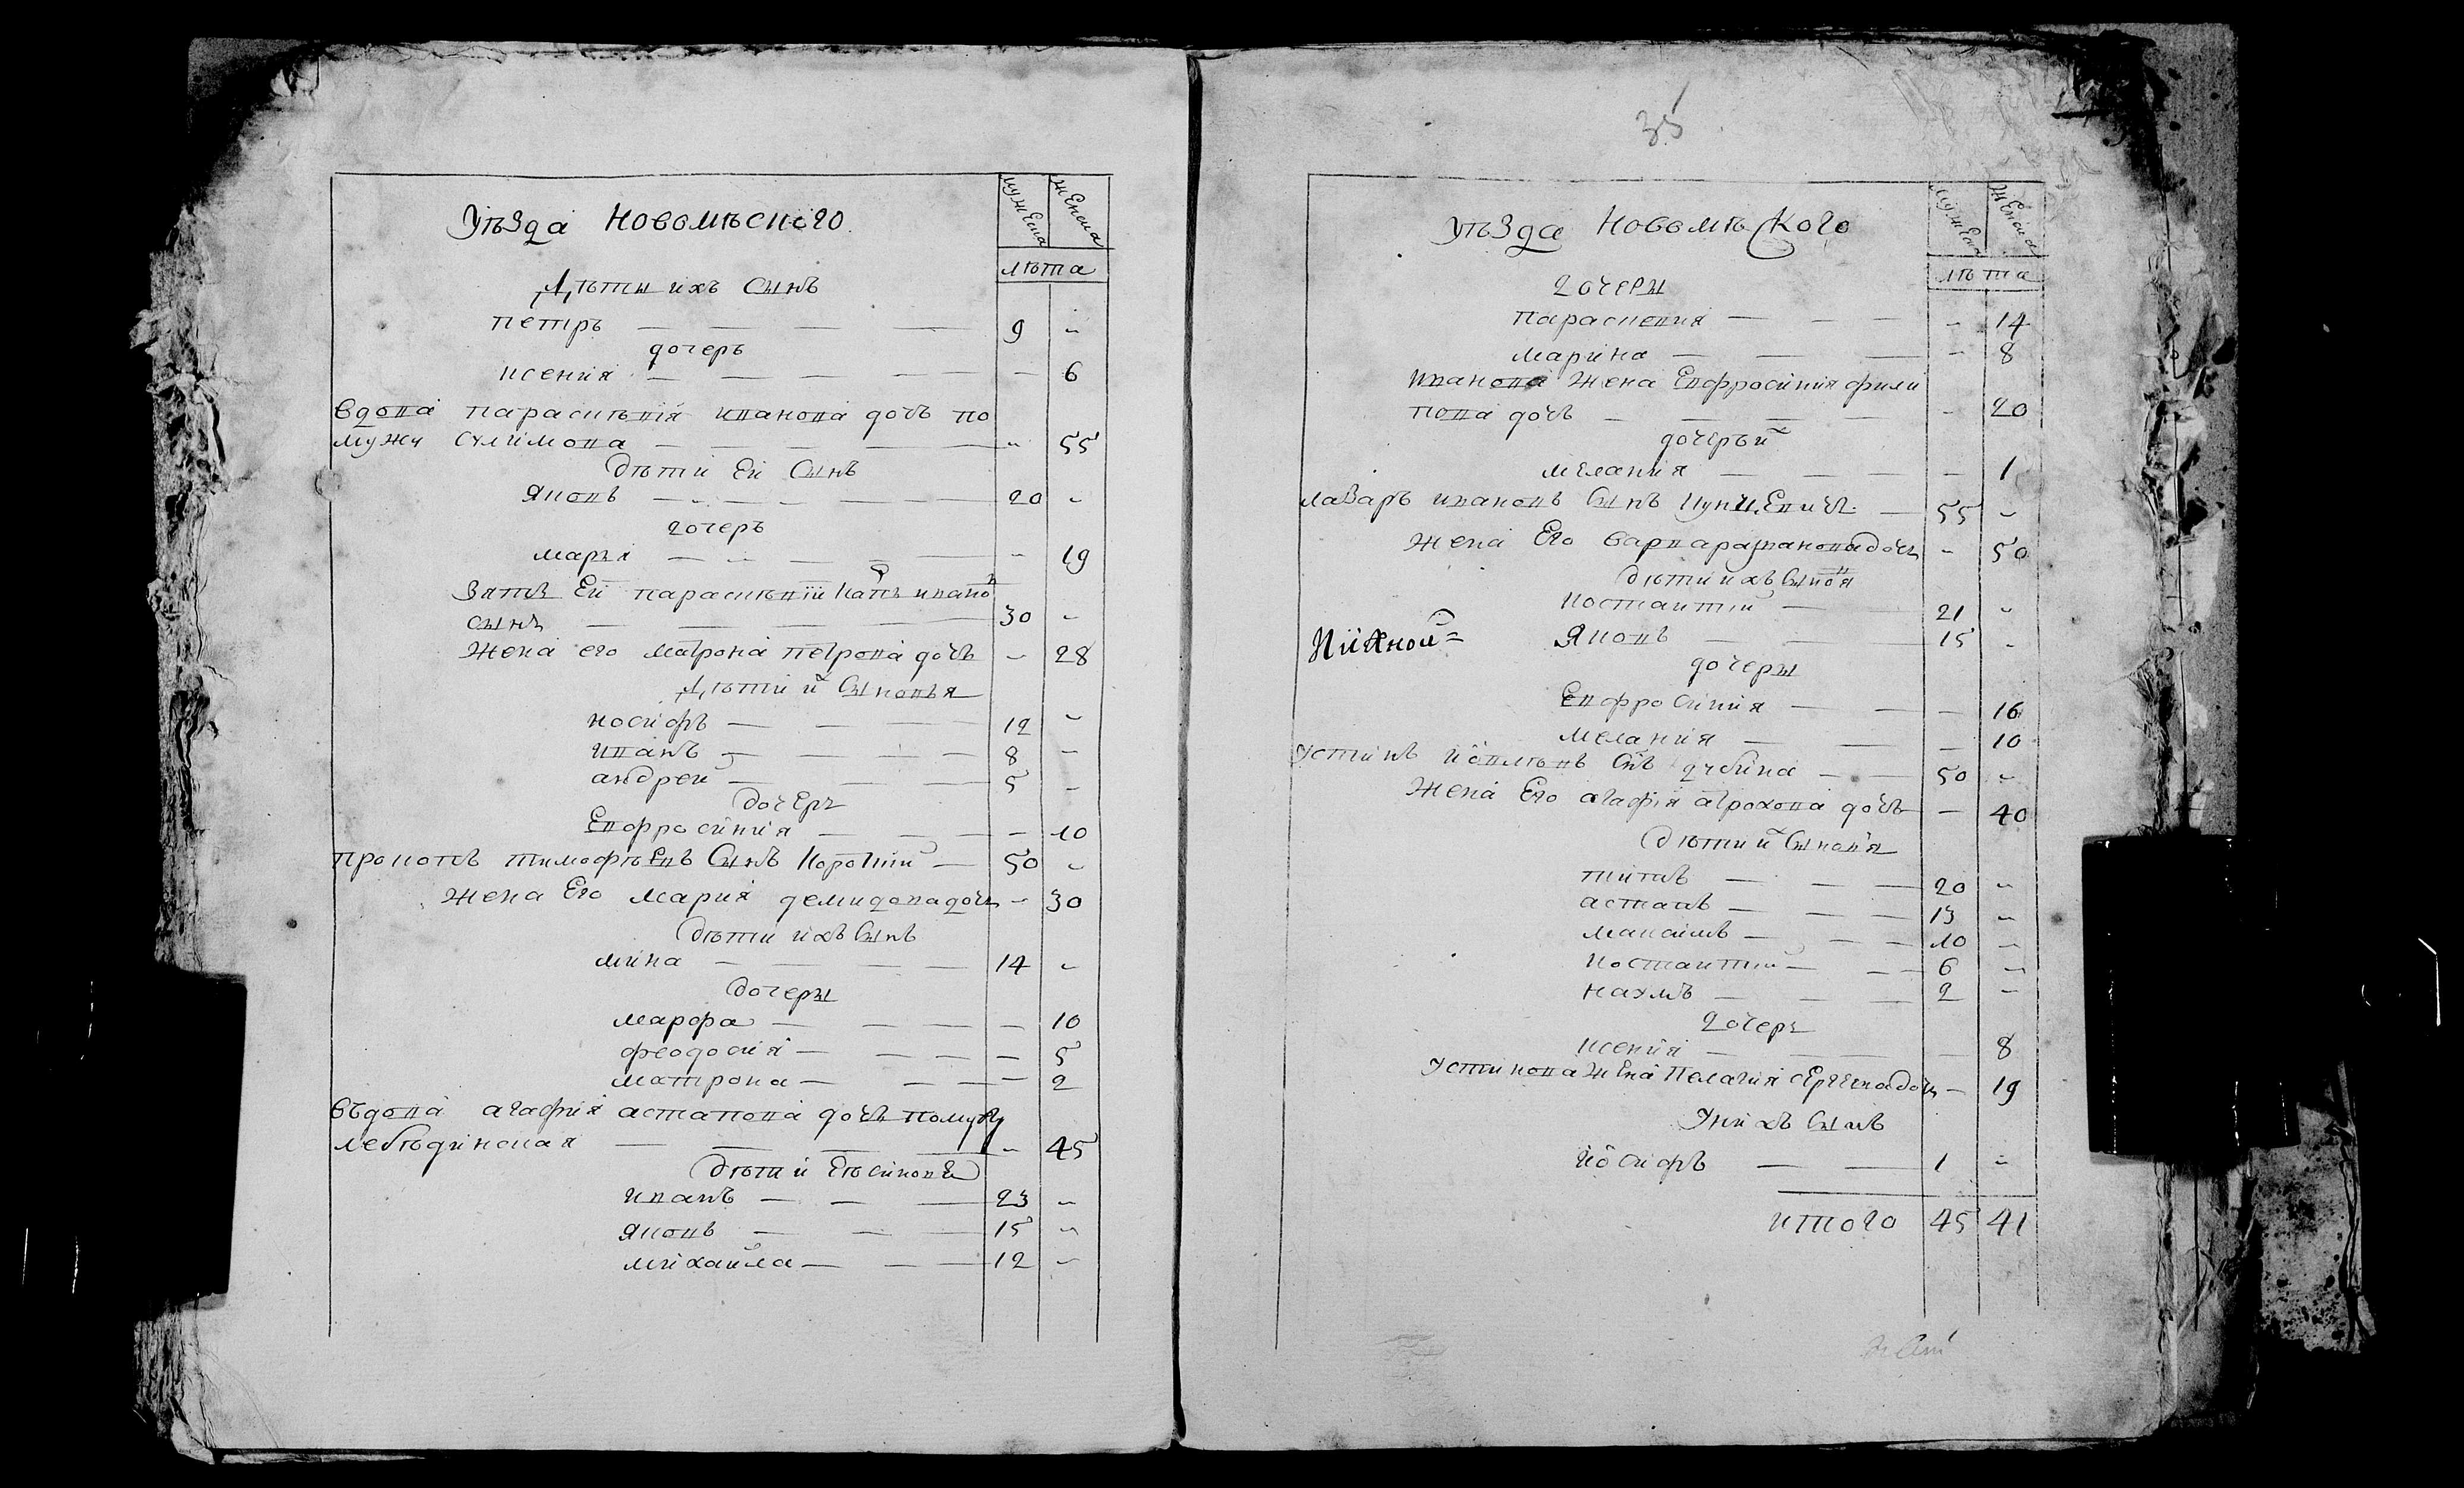 Уѣзда Новомѣского
мужеска
женска
лѣта
Дѣты ихъ сынъ
петръ — — — — 9 -
дочеръ
ксенія — — — — - 6
вдова параскѣвія иванова дочь по
мужу сулимова — — — — - 55
дѣти ей сынъ
яковъ — — — — 20 -
дочеръ
марья — — — — - 19
зять ей параскѣвіи иванов
сынъ — — — — 30 -
жена его матрона петрова дочь - 28
дѣти их сыновья
иосифъ — — — 12 -
иванъ — — — 8 -
андрей — — — 5 -
дочерь
Евфросинія — — — - 10
прокопъ тимофѣевъ сынъ короткій — 50 -
жена Его мария демидова дочь - 30
дѣти ихъ сынъ
мина — — — — 14 -
дочеры
марфа — — — - 10
феодосия — — — - 5
матрона — — — - 2
въдова агафия астапова дочь по мужу
лебѣдинская — — — — - 45
дѣти Еѣ синовя
иванъ — — — 23 -
яковъ — — — 15 -
михайла — — — 12 -
35
Уѣзда Новомѣского
мужеска
женска
лѣта
дочеры
параскевия — — — - 14
марина — — — - 8
иванова жена Евфросиния фили
пова дочь — — — - 20
дочерь их
мелания — — — - 1
лазарь ивановъ сынъ куницевичь — 55 -
жена Его варвара иванова дочь - 50
дѣти ихъ сыновя
костантий — 21 -
яковъ — — 15 -
дочеры
Евфросиния — — - 16
мелания — — - 10
устинъ иовлѣвъ снъ дубина — — 50 -
жена Его агафия атрохова дочь — - 40
дѣти их сыновя
титъ — — — 20 -
астапъ — — — 13 -
максимъ — — — 10 -
костантий — — 6 -
наумъ — — — 2 -
дочерь
ксения — — — 8
устинова жена пелагия сергеева дочь — 19
У них сынъ
иосифъ — — 1 -
итого 45 41